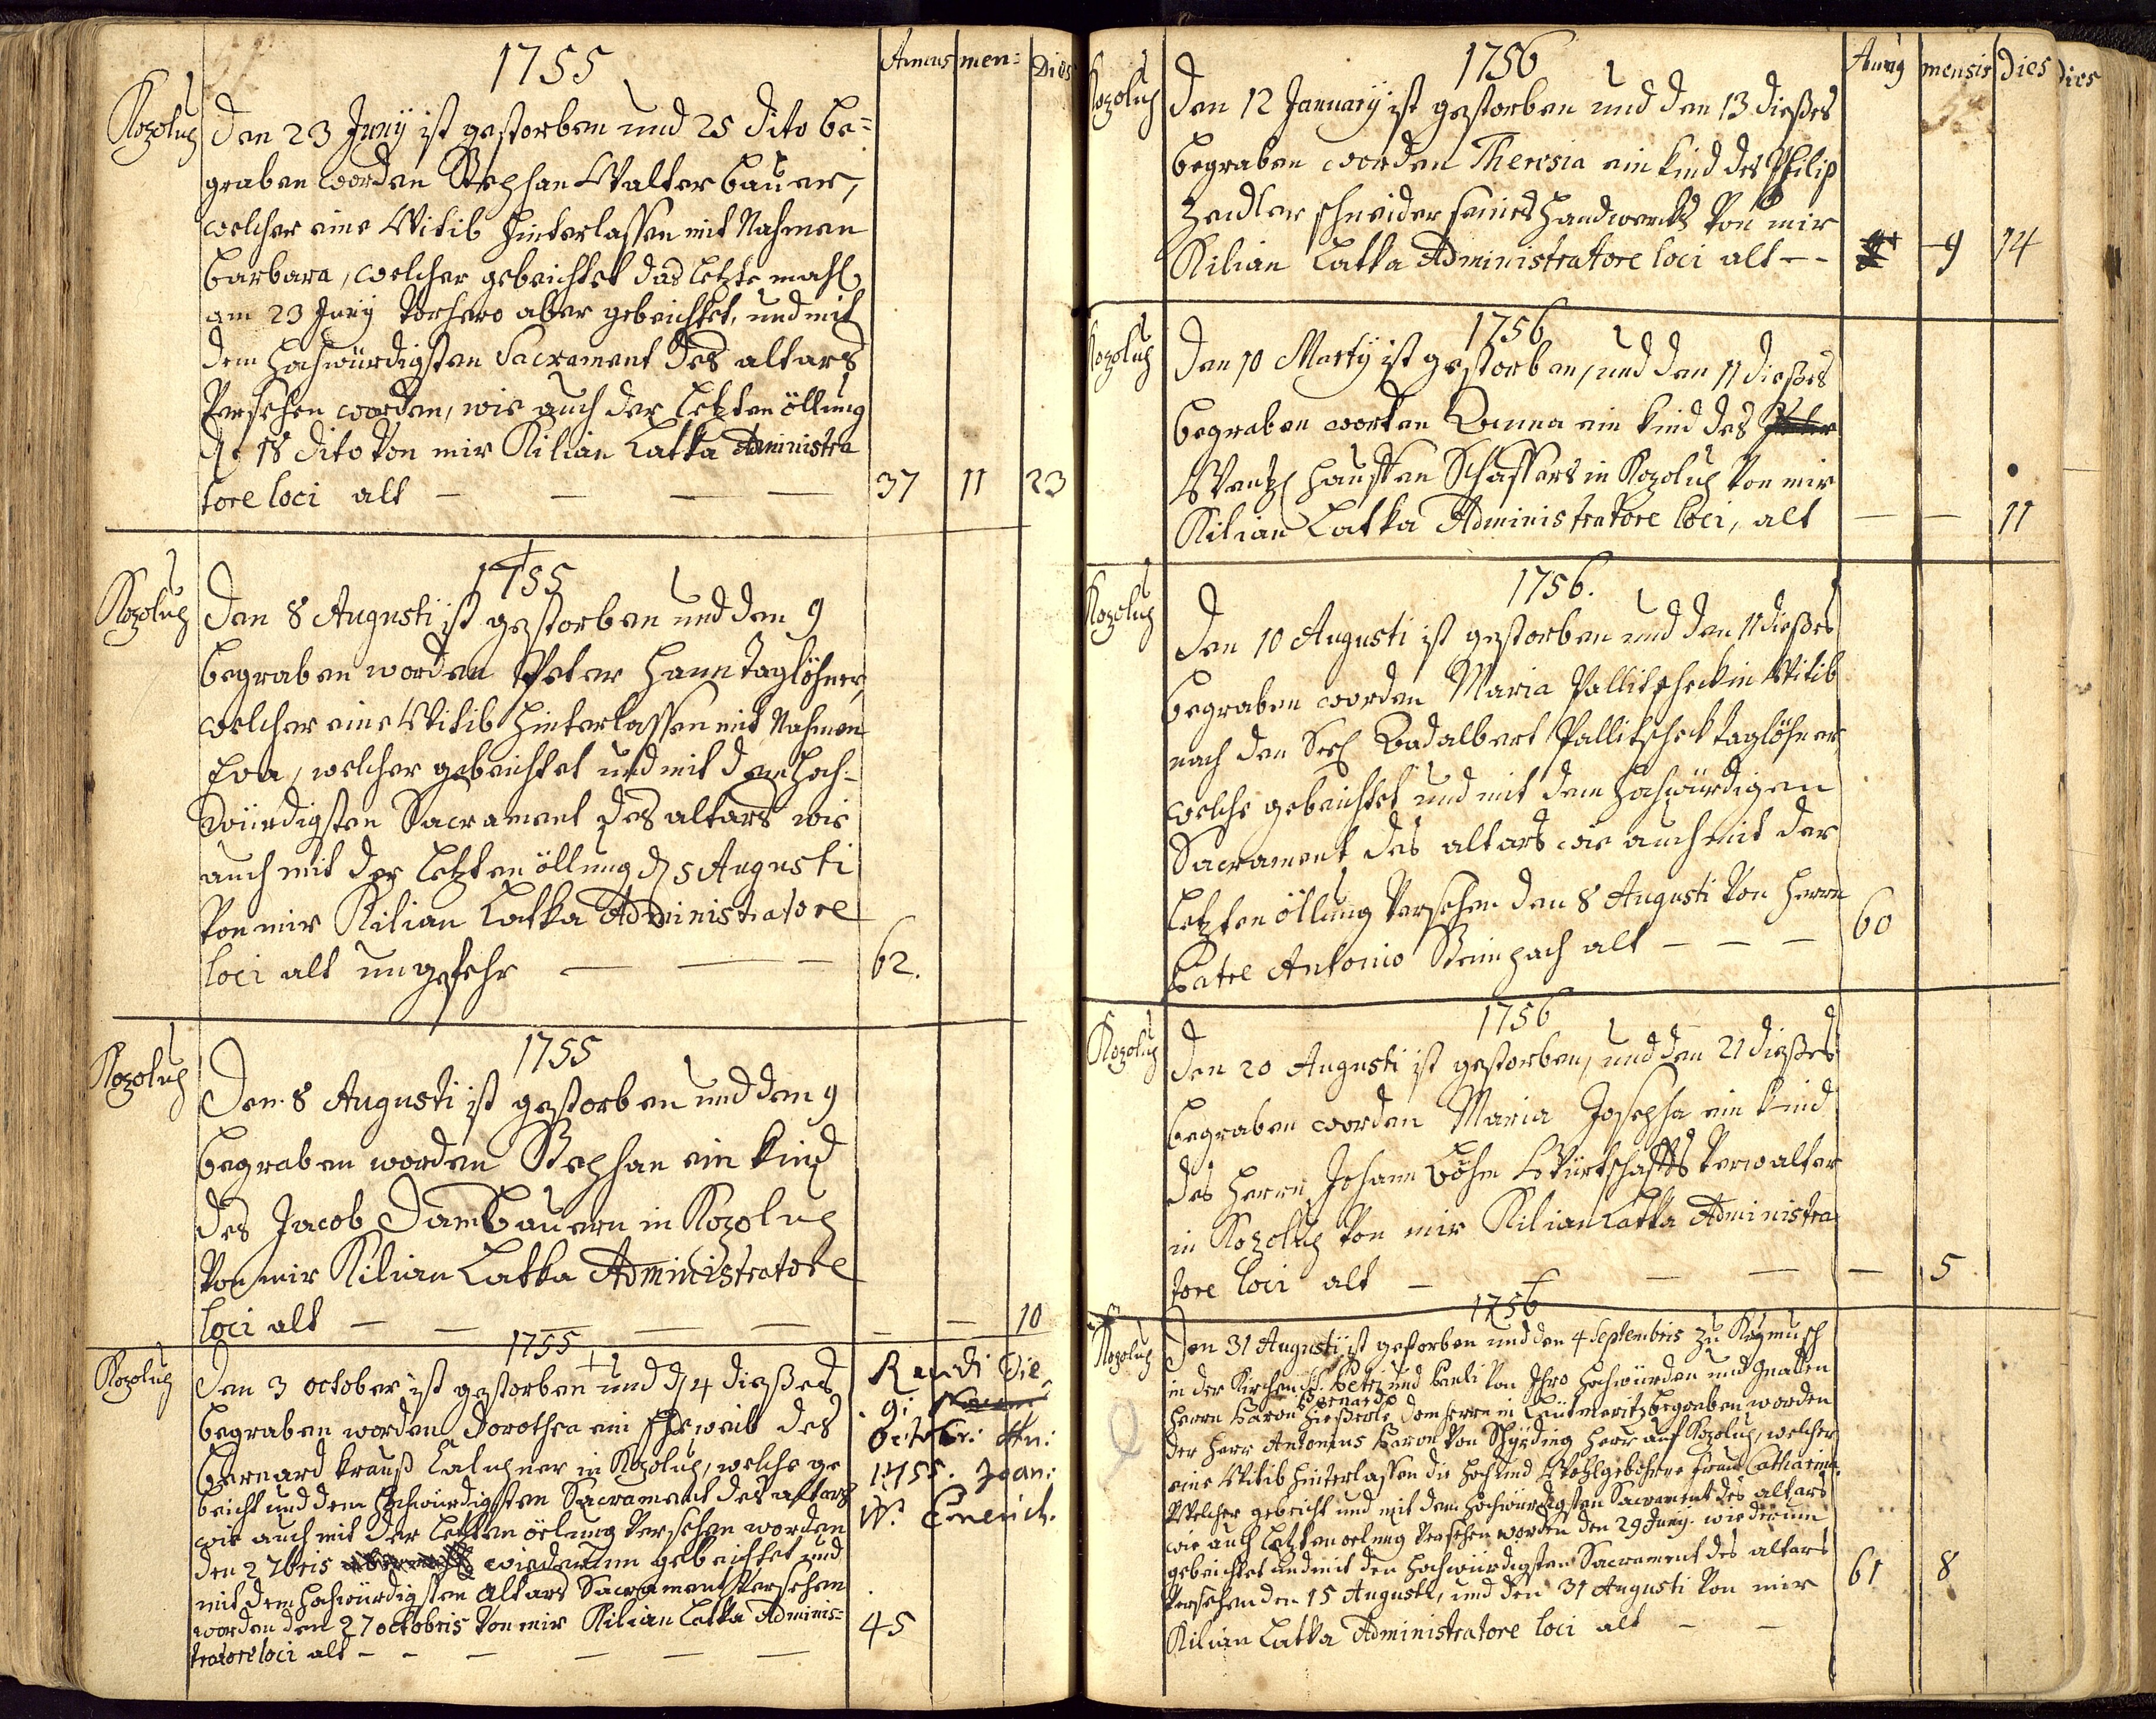 1755
Annus men: Dies
Kozolup
Den 23 Junÿ ist gestorben und 25 dito be=
graben worden Stephan Walter bauer,
welcher eine Witib hinterlassen mit Nahmen
Barbara, welcher gebeichtet das letzte mahl
am 23 Junÿ vorhero aber gebeichtet, und mit
dem hochwürdigsten Sacrament des altars
versehen worden, wie auch der letzten öllung
d. 18 dito von mir Kilian Latka Administra
tore loci alt — — — — 37 11 23
1755
Kozolup
Den 8 Augusti ist gestorben und den 9
begraben worden Peter Hann Taglöhner,
welcher eine Witib hinterlassen mit Nahmen
Eva, welcher gebeichtet und mit dem hoch-
würdigsten Sacrament des altars wie
auch mit der letzten öllung d. 5 Augusti
von mir Kilian Latka Administratore
loci alt ungefehr — — — 62.
1755
Kozolup
Den 8 Augusti ist gestorben und den 9
begraben worden Stephan ein Kind
des Jacob Dambauern in Kozolup
von mir Kilian Latka Administratore
loci alt — — — — — — — 10
1755
Kozolup
Den 3 october ist gestorben und d. 4 dieses
begraben worden Dorothea ein Eheweib des
Bernard Krauß in Kozolup, welche ge
beicht und dem hochwürdigsten Sacrament des altars
wie auch mit der letzten öelung versehen worden
den 2 7bris wiederum gebeichtet und
mit dem hochwürdigsten altars Sacrament versehen
worden den 27 octobris von mir Kilian Latka Adminis=
tratore loci alt — — — — — — 45
Die
9:
Octobr:
1755. Joan:
W.
1756
mensis dies
dies
Kozolup
Den 12 January ist gestorben und den 13 dieses
begraben worden Theresia ein Kind des Philip
Zeidler schneider seines Handwercks von mir
Kilian Latka Administratore loci alt — — 9 14
1756
Kozolup
Den 10 Martÿ ist gestorben, und den 11 dieses
begraben worden Anna ein Kind des
Wentzl Schaffers in Kozolup von mir
Kilian Latka Administratore loci, alt — — 11
1756.
Kozolup
Den 10 Augusti ist gestorben und den 11 dieses
begraben worden Maria Pallitscheckin Witib
nach den Seel Adalbert Pallitscheck Taglöhner
welche gebeichtet und mit dem hochwürdigen
Sacrament des altars wie auch mit der
letzten öllung versehen den 8 Augusti von Herrn
Patre Antonio alt — — — 60
1756
Kozolup
Den 20 Augusti ist gestorben, und den 21 dieses
begraben worden Maria Josepha ein Kind
des Herrn Johann Böhm Würtschaffts verwalter
in Kozolup von mir Kilian Latka Administra
tore loci alt — — — — — 5
1756
Kozolup
Den 31 Augusti ist gestorben und den 4 Septembris zu
in der Kirchen SS. Petri und Pauli von Ihro Hochwürden und Gnaden
Bernard
Herrn Baron domherrn in Leütmeritz begraben worden
der Herr Antonius Baron von Herr auf Kozolup, welcher
eine Witib hinterlassen die hoch und Wohlgebohrne Frau Catharina.
Welcher gebeicht und mit dem hochwürdigsten Sacrament des altars
wie auch letzten oelung versehen worden den 29 Juny. wiederum
gebeichtet und mit den hochwürdigsten Sacrament des altars
versehen den 15 Augusti, und den 31 Augusti von mir
Kilian Latka Administratore loci alt — — 61 8